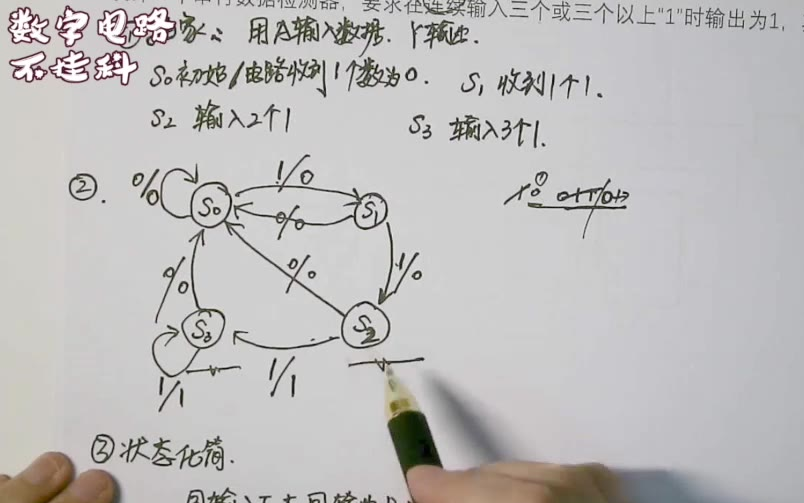 个串行数据检测器，要求在连续输入三个或三个以上"1"时输出为1，
数字电路
不挂科
用A输入数据. Y输出.
S0初始/电路收到1个数为0. S1 收到1个1.
S2 输入2个1 S3 输入3个1.
②.
0/0 1/0
S0 S1
0/0
0/0 0/0 1/0
S3 S2
1/1 1/1
③状态化简.